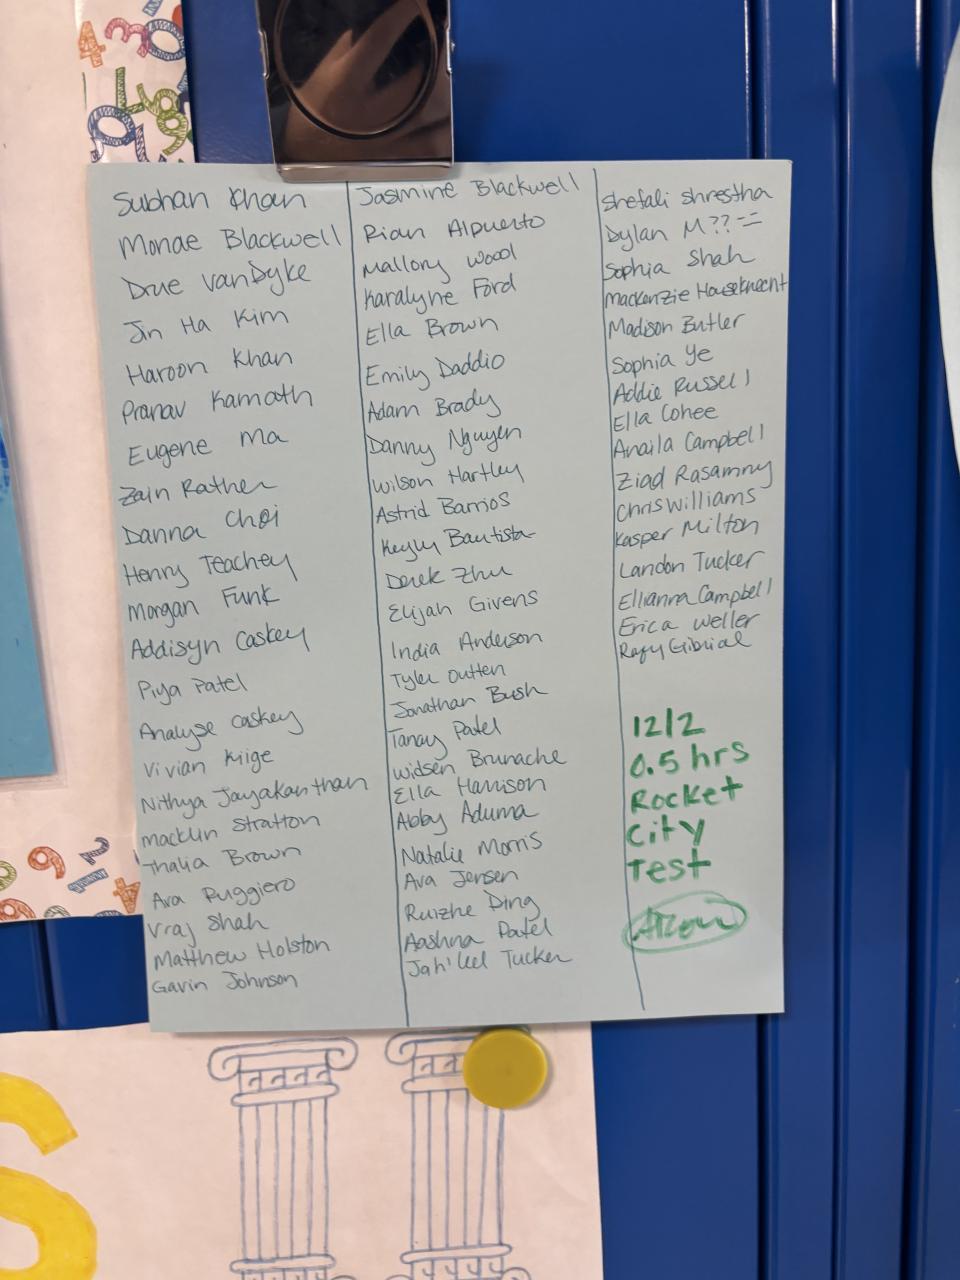 Subhan Khan
Monae Blackwell
Drue VanDyke
Jin Ha Kim
Haroon Khan
Pranav Kamath
Eugene Ma
Zain Rather
Danna Choi
Henry Teachey
Morgan Funk
Addisyn Caskey
Piya Patel
Analyse Caskey
Vivian Kiige
Nithya Jayakanthan
Macklin Stratton
Thalia Brown
Ava Ruggiero
Vraj Shah
Matthew Holston
Gavin Johnson
Jasmine Blackwell
Rian Alpuerto
Mallory Wood
Karalyne Ford
Ella Brown
Emily Daddio
Adam Brady
Danny Nguyen
Wilson Hartley
Astrid Barrios
Bautista
Derek Zhu
Elijah Givens
India Anderson
Tyler Outten
Jonathan Bush
Tanay Patel
Widsen Brunache
Ella Harrison
Abby Aduma
Natalie Morris
Ava Jensen
Ruizhe Ding
Aashna Patel
Tucker
Shefali Shrestha
Dylan M??--
Sophia Shah
Mackenzie Houseknecht
Madison Butler
Sophia Ye
Addie Russell
Ella Cohee
Anaila Campbell
Ziad Rasamny
Chris Williams
Kasper Milton
Landon Tucker
Ellianna Campbell
Erica Weller
12/2
0.5 hrs
Rocket
City
Test